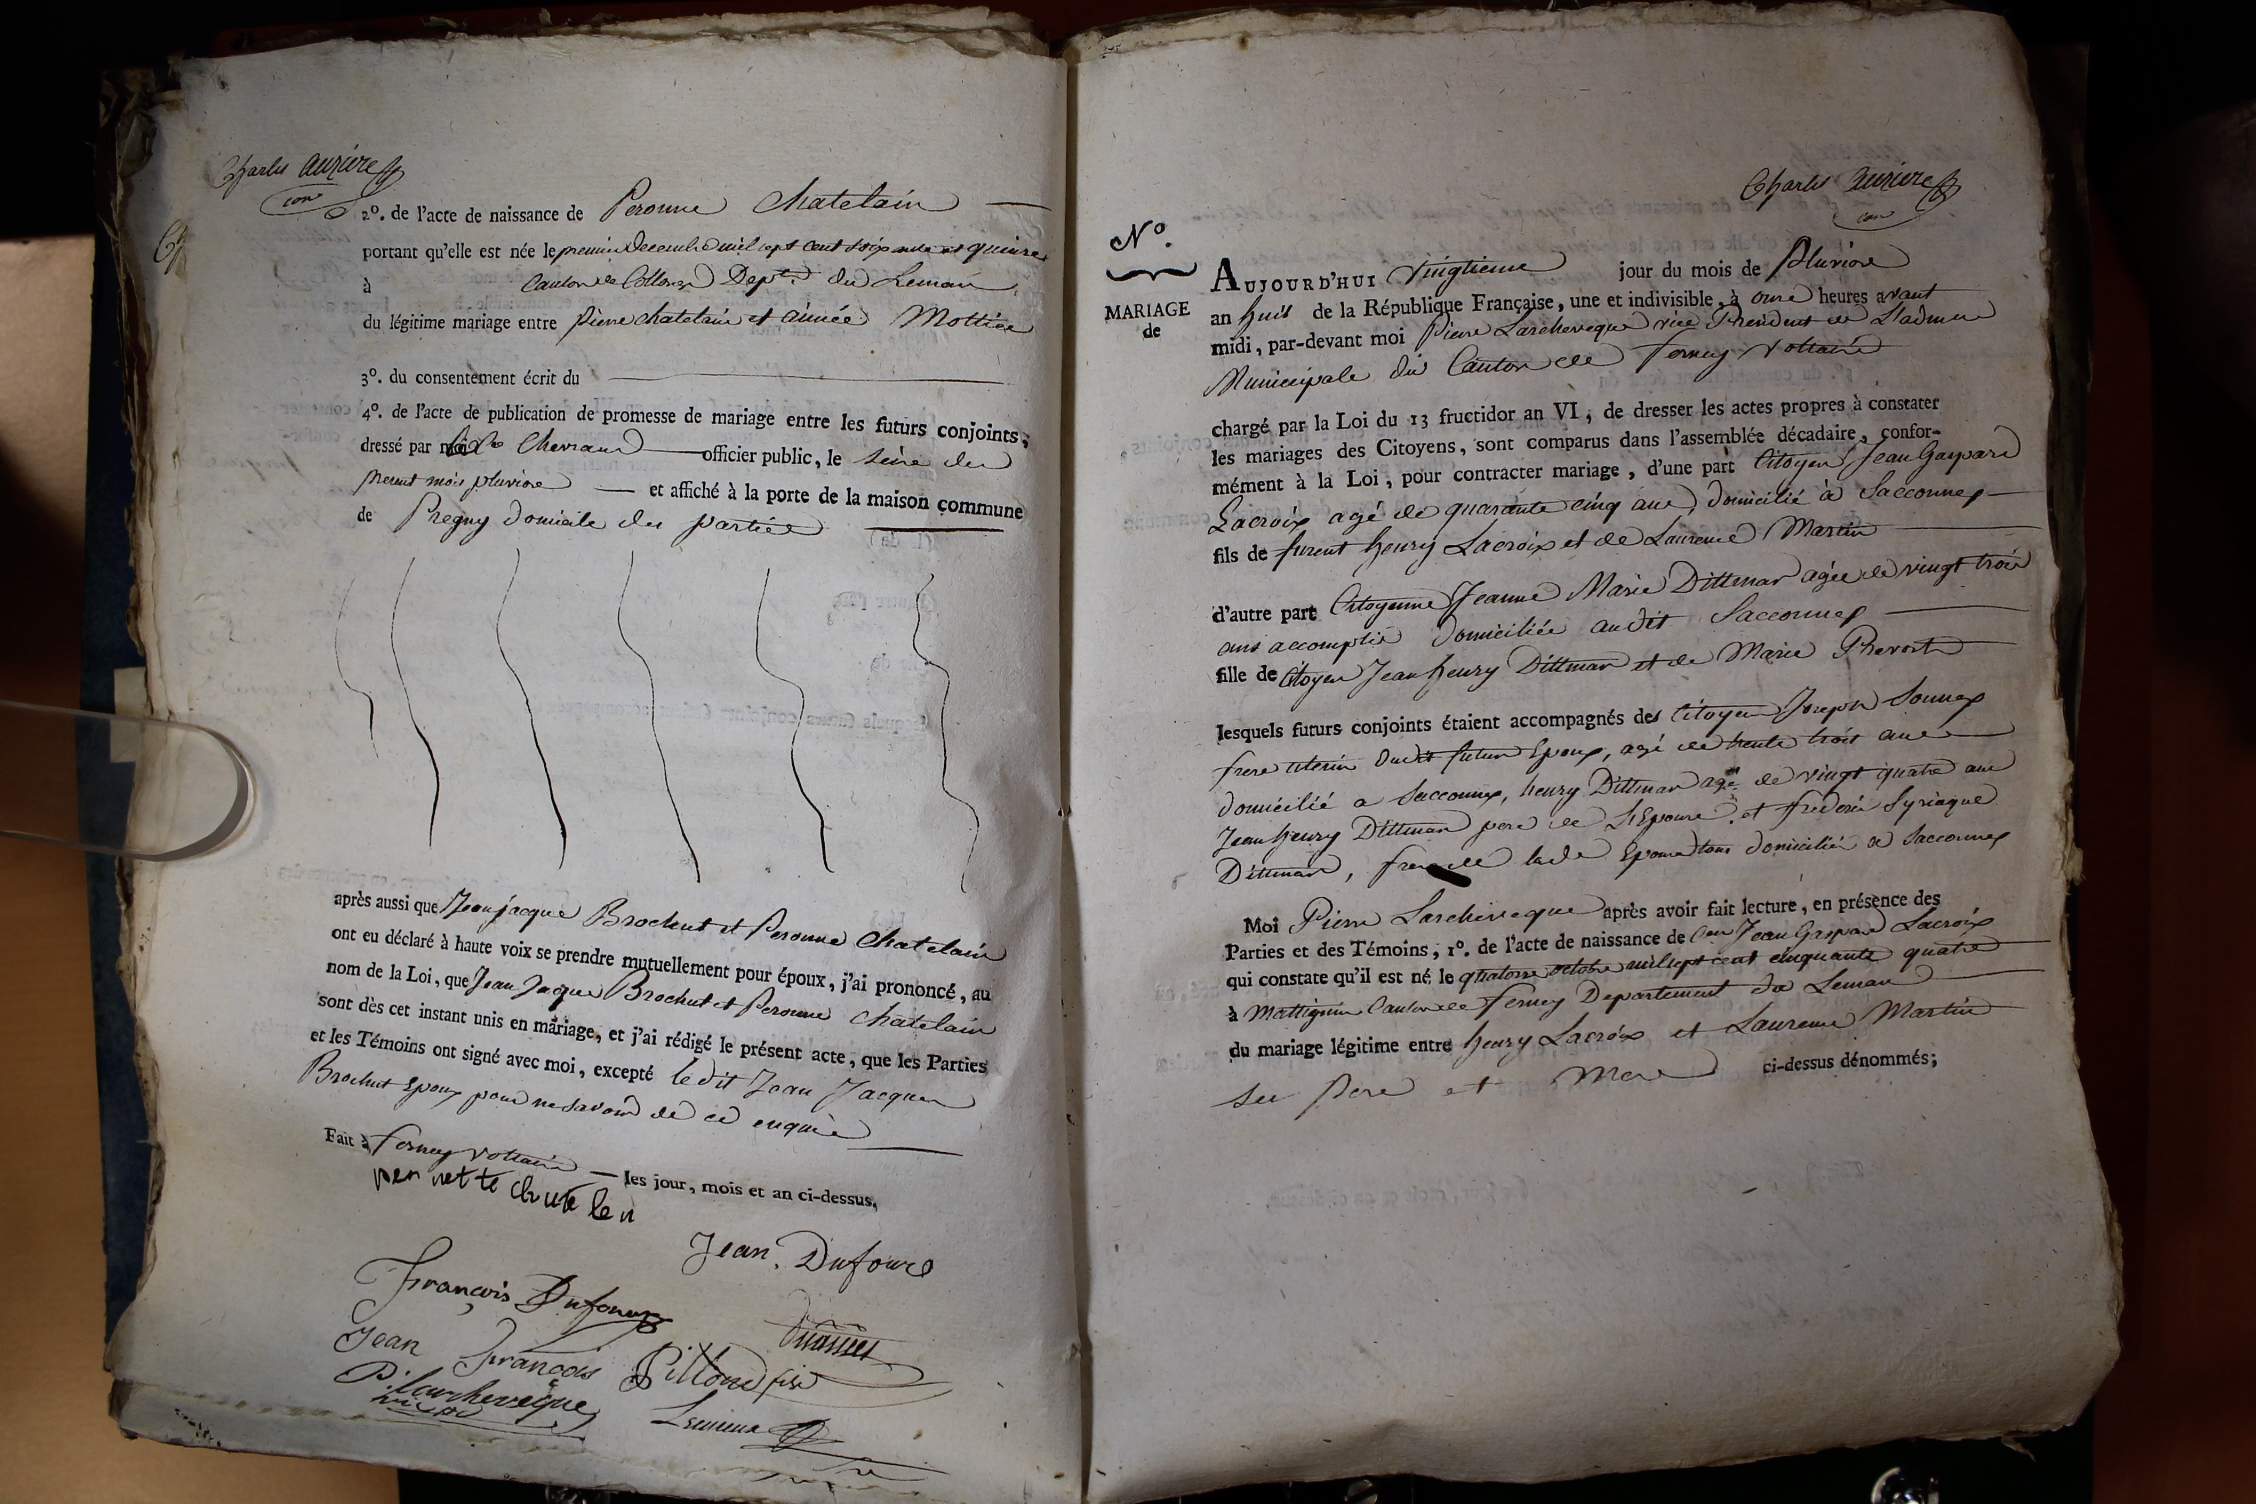 Charles auziere
con
2°. de l'acte de naissance de Peronne Chatelain
portant qu'elle est née le premier decembre mil sept cent soixante et quinze
à Canton de Collonge Dept. du Leman
du légitime mariage entre pierre chatelain et aimée Mottier
3°. du consentement écrit du
4°. de l'acte de publication de promesse de mariage entre les futurs conjoints,
dressé par Chevraud officier public, le seize du
present mois pluviose et affiché à la porte de la maison commune
de Pregny domicile des parties
après aussi que Jean jacque Brochut et Peronne Chatelain
ont eu déclaré à haute voix se prendre mutuellement pour époux, j'ai prononcé, au
nom de la Loi, que Jean Jaque Brochut et Peronne Chatelain
sont dès cet instant unis en mariage, et j'ai rédigé le présent acte, que les Parties
et les Témoins ont signé avec moi, excepté le dit Jean Jacques
Brochut Epoux pour ne savoir de ce enquis
Fait à ferney voltaire les jour, mois et an ci-dessus.
per net te chate le n
Jean. Dufour
François Dufour
Jean François Pillon fils
P. Larcheveque
Charles auziere
con
N°.
MARIAGE
de
AUJOURD'HUI vingtieme jour du mois de Pluviose
an huit de la République Française, une et indivisible, à onze heures avant
midi, par-devant moi Pierre Larcheveque vice President de L'admn
Municipale du Canton de ferney voltaire
chargé par la Loi du 13 fructidor an VI, de dresser les actes propres à constater
les mariages des Citoyens, sont comparus dans l'assemblée décadaire, confor-
mément à la Loi, pour contracter mariage, d'une part Citoyen Jean Gaspard
Lacroix agé de quarante cinq ans, domicilié à Sacconnex
fils de furent henry Lacroix et de Laurence Martin
d'autre part Citoyenne Jeanne Marie Dittmar agée de vingt trois
ans accomplis domiciliée audit Sacconnex
fille de Citoyen Jean henry Dittmar et de Marie Prevost
lesquels futurs conjoints étaient accompagnés des Citoyens Joseph Sonnex
frere uterin dudit futur Epoux, agé de trente trois ans
domicilié a Sacconnex, henry Dittmar agé de vingt quatre ans
Jean henry Dittmar pere de L'Epouse, et frederic Syriaque
Dittmar, frere de lade Epouse tous domiciliés a Sacconnex
Moi Pierre Larcheveque après avoir fait lecture, en présence des
Parties et des Témoins, 1°. de l'acte de naissance de Cen Jean Gaspard Lacroix
qui constate qu'il est né le quatorze octobre mil sept cent cinquante quatre
à Mattignin Canton de ferney Departement du Leman
du mariage légitime entre henry Lacroix et Laurence Martin
ses Pere et Mere ci-dessus dénommés;